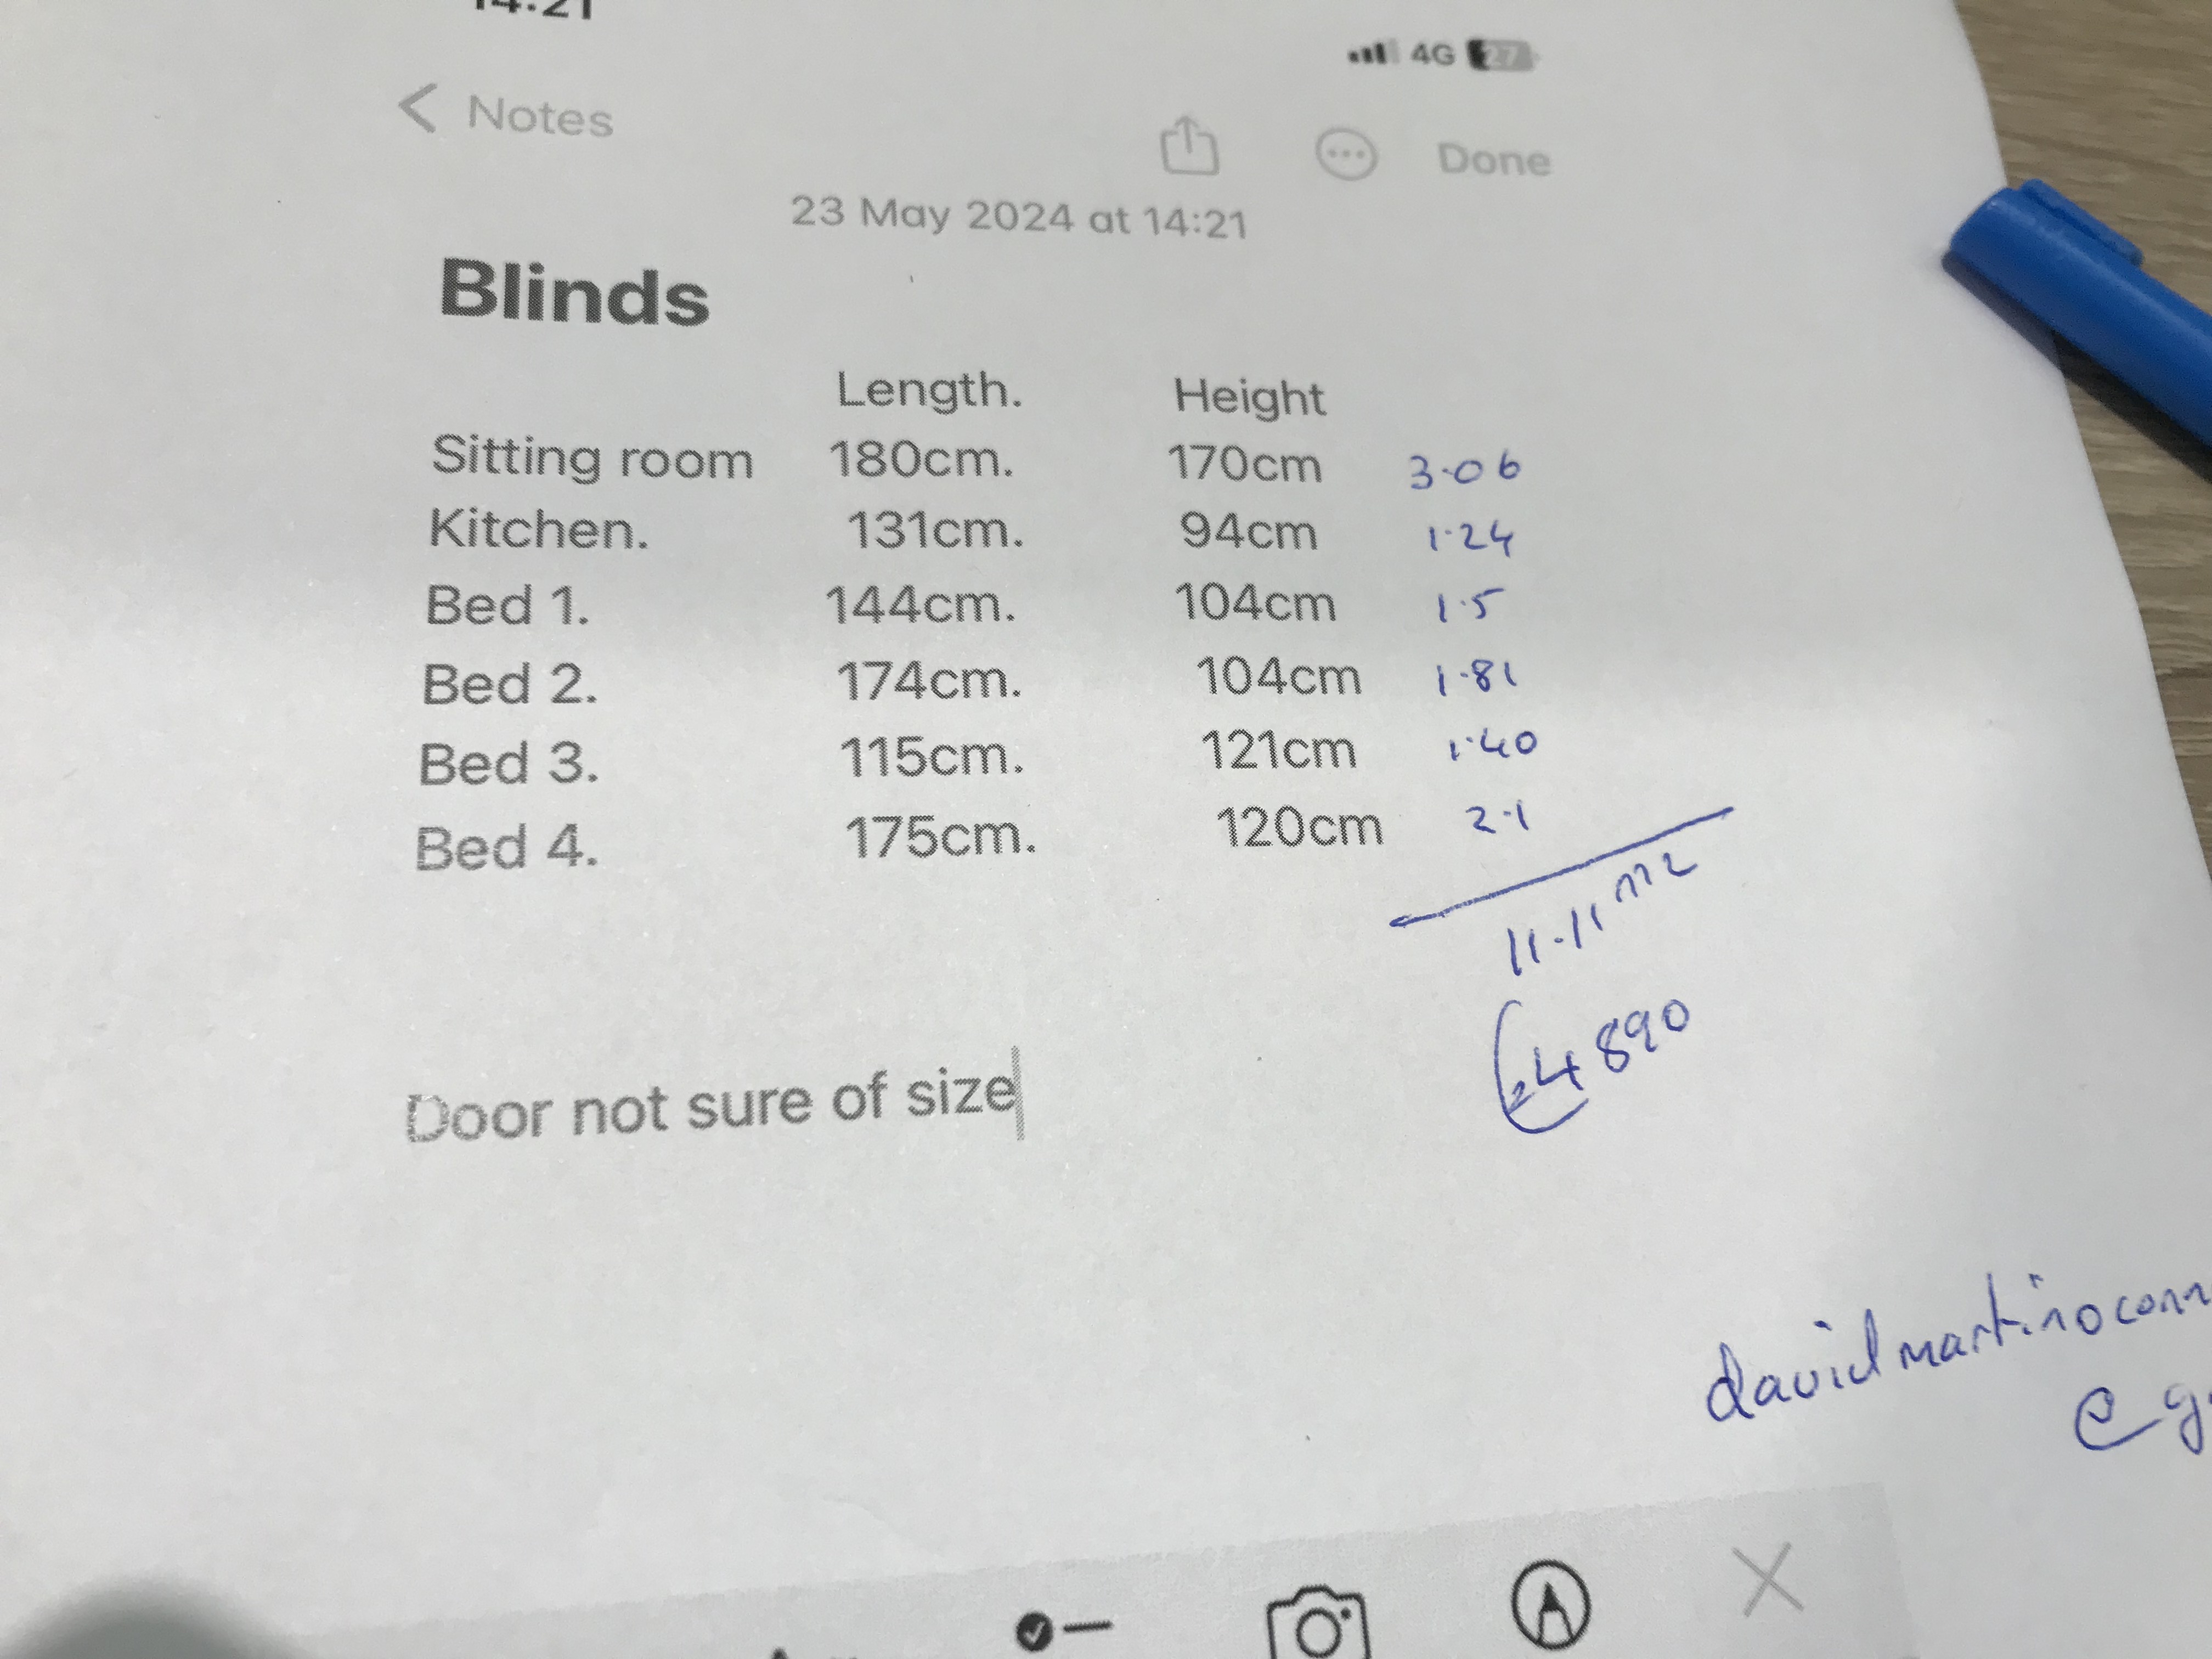 14:21
4G 27
< Notes
Done
23 May 2024 at 14:21
Blinds
Length. Height
Sitting room 180cm. 170cm 3.06
Kitchen. 131cm. 94cm 1.24
Bed 1. 144cm. 104cm 1.5
Bed 2. 174cm. 104cm 1.81
Bed 3. 115cm. 121cm 1.40
Bed 4. 175cm. 120cm 2.1
11.11 m2
€4890
Door not sure of size
davidmartinoconn
@g